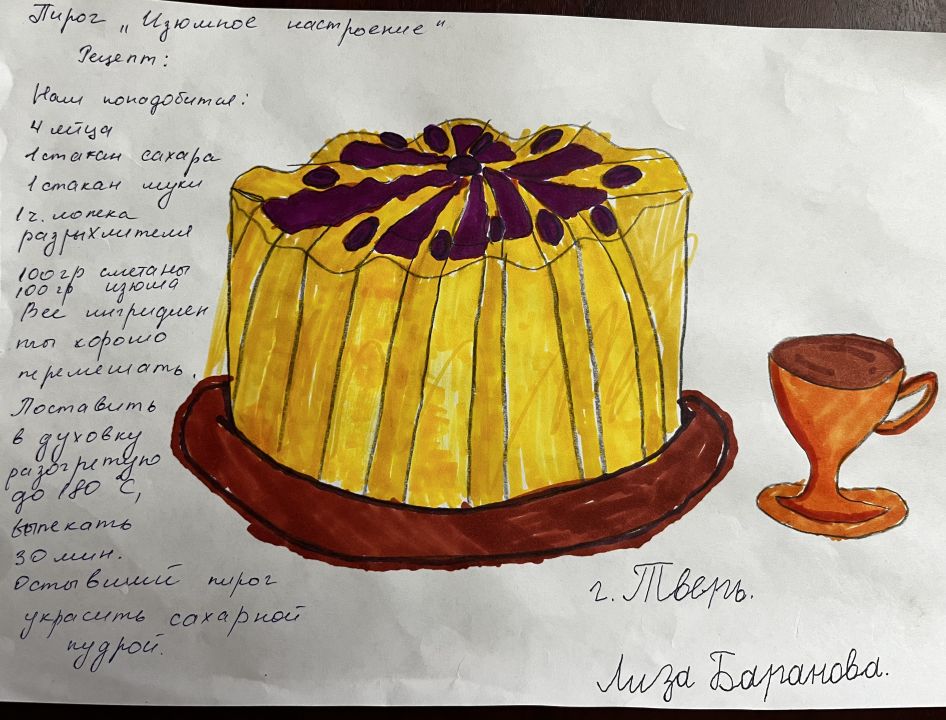 Пирог „Изюмное настроение"
Рецепт:
Нам понадобится:
4 яйца
1 стакан сахара
1 стакан муки
1 ч. ложека
разрыхлителя
100 гр сметаны
100 гр изюма
Все ингридиен
ты хорошо
перемешать.
Поставить
в духовку
разогретую
до 180°С,
выпекать
30 мин.
Остывший пирог
украсить сахарной
пудрой.
г. Тверь.
Лиза Баранова.